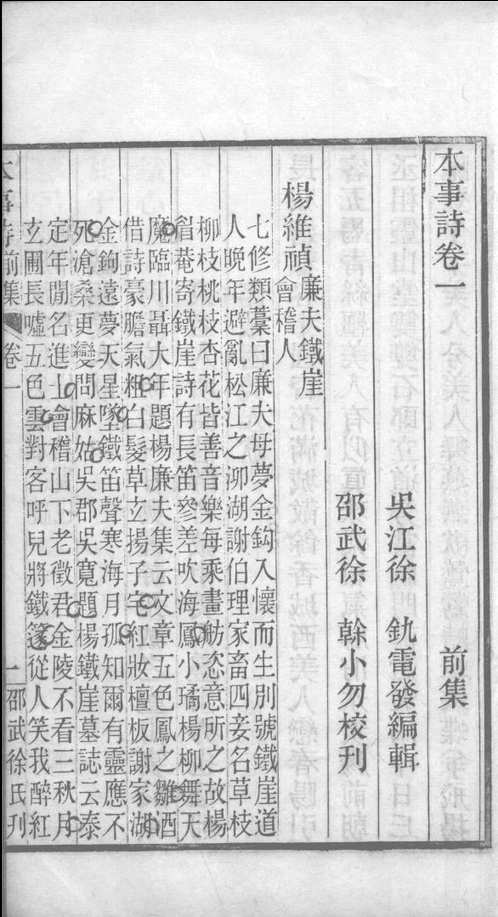 本事詩卷一
前集
吳江徐釚電發編輯
邵武徐榦小勿校刊
楊維禎廉夫鐵崖會稽人
七修類藁曰廉夫母夢金鈎入懷而生別號鐵崖道
人晚年避亂松江之泖湖謝伯理家畜四妾名草枝
柳枝桃枝杏花皆善音樂每乘畫舫恣意所之故楊
眉菴寄鐵崖詩有長笛參差吹海鳳小璚楊柳舞天
魔臨川聶大年題楊廉夫集云文章五色鳳之雛酒
借詩豪膽氣粗白髮草玄揚子宅紅妝檀板謝家湖
金鉤遠夢天星墜鐵笛聲寒海月孤知爾有靈應不
死滄桑更變問麻姑吳郡吳寬題楊鐵崖墓誌云泰
定年閒名進士會稽山下老徵君金陵不看三秋月
玄圃長噓五色雲對客呼兒將鐵篴從人笑我醉紅
本事詩前集
卷一
一
邵武徐氏刊